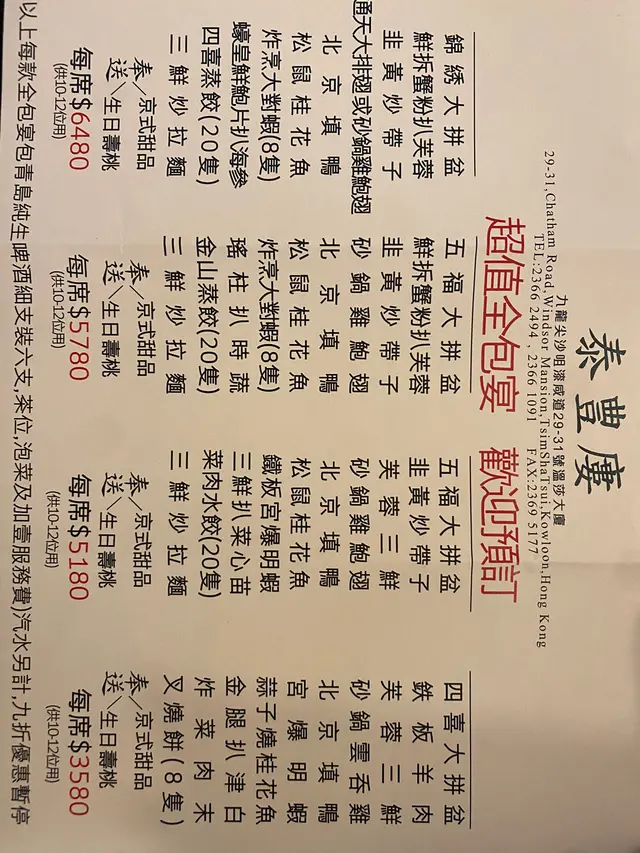 泰豐廔
九龍尖沙咀漆咸道29-31號溫莎大廈
29-31,Chatham Road,Windsor Mansion,TsimShaTsui,Kowloon,Hong Kong
TEL:2366 2494 , 2366 1091 FAX:2369 5177
超值全包宴 歡迎預訂
錦綉大拼盆
鮮拆蟹粉扒芙蓉
韭黃炒帶子
通天大排翅或砂鍋雞鮑翅
北京填鴨
松鼠桂花魚
炸烹大對蝦(8隻)
蠔皇鮮鮑片扒海參
四喜蒸餃(20隻)
三鮮炒拉麵
奉/京式甜品
送\生日壽桃
每席$6480
(供10-12位用)
五福大拼盆
鮮拆蟹粉扒芙蓉
韭黃炒帶子
砂鍋雞鮑翅
北京填鴨
松鼠桂花魚
炸烹大對蝦(8隻)
瑤柱扒時蔬
金山蒸餃(20隻)
三鮮炒拉麵
奉/京式甜品
送\生日壽桃
每席$5780
(供10-12位用)
五福大拼盆
韭黃炒帶子
芙蓉三鮮
砂鍋雞鮑翅
北京填鴨
松鼠桂花魚
鐵板宮爆明蝦
三鮮扒菜心苗
菜肉水餃(20隻)
三鮮炒拉麵
奉/京式甜品
送\生日壽桃
每席$5180
(供10-12位用)
四喜大拼盆
鉄板羊肉
芙蓉三鮮
砂鍋雲吞雞
北京填鴨
宮爆明蝦
蒜子燒桂花魚
金腿扒津白
炸菜肉末
叉燒餅(8隻)
奉/京式甜品
送\生日壽桃
每席$3580
(供10-12位用)
以上每款全包宴包青島純生啤酒細支裝六支,茶位,泡菜及加壹服務費)汽水另計,九折優惠暫停